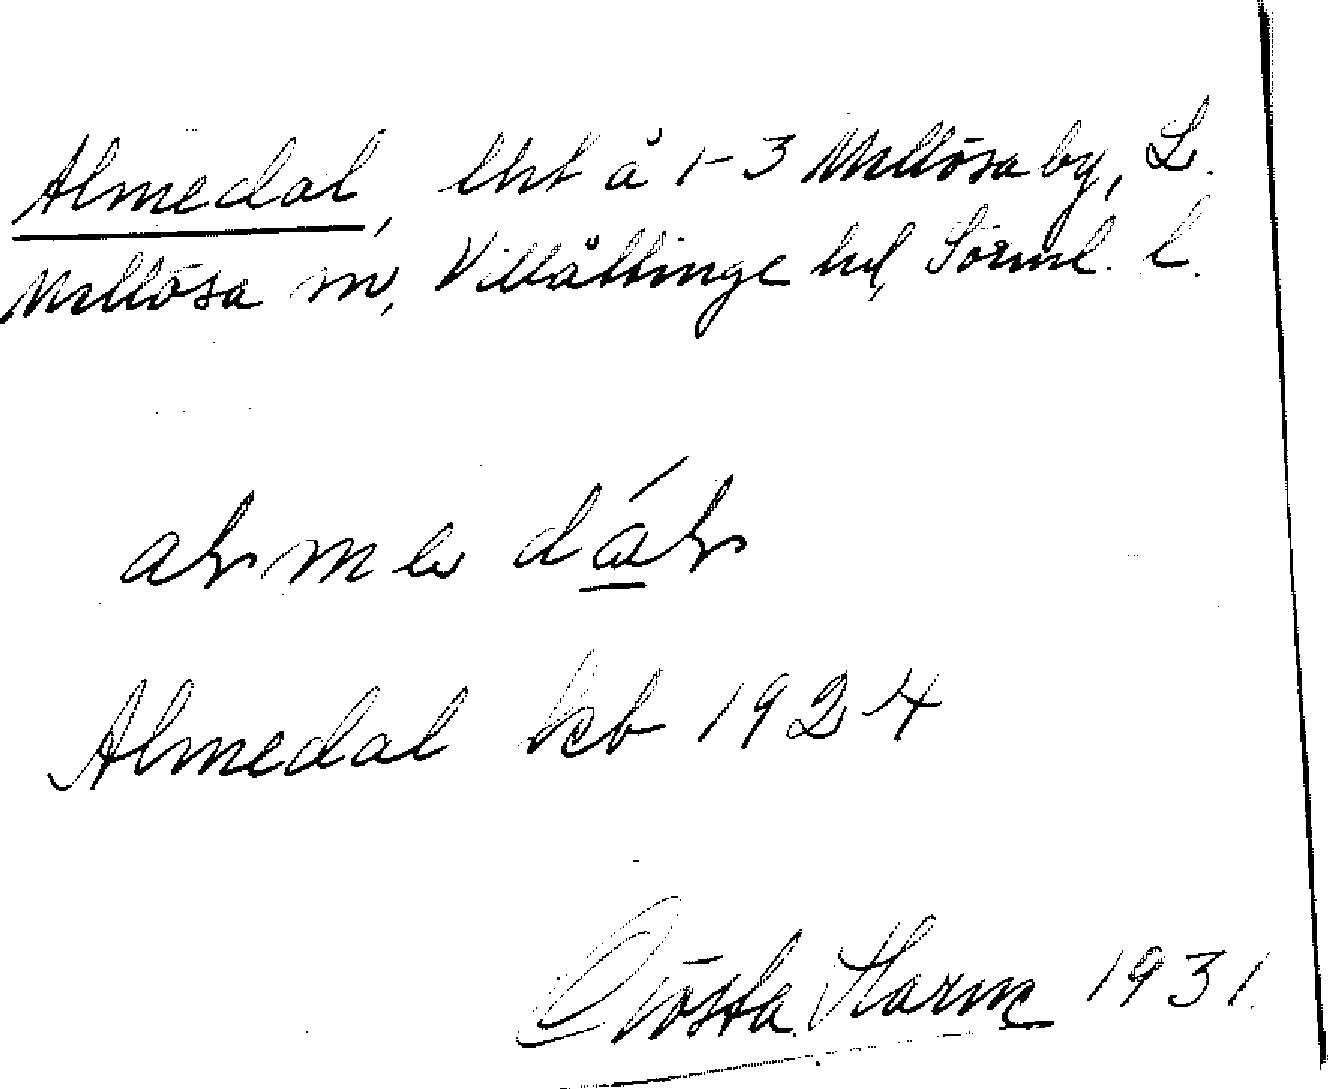 Almedal, lht å 1-3 Mellösa by, L.
Mellösa sn, Villåttinge hd, Sörml. l.
almedál
Almedal kb 1924
Gösta Harm 1931.